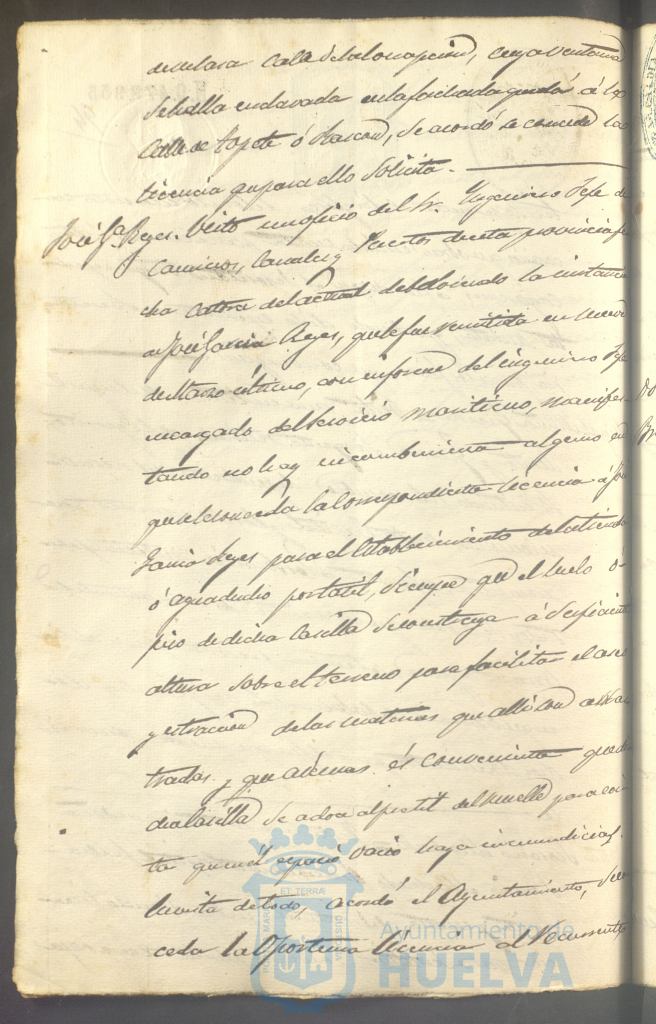 de su casa calle de la Concepción, cuya ventana
se halla enclavada en la fachada que da á la
calle de Topete ó Rascon, se acordó se conceda la
licencia que para ello solicita.
José Ga. Reyes. Visto un oficio del Sr. Ingeniero Jefe de
Caminos, Canales y Puertos de esta provincia
catorce del actual devolviendo la instancia
de José Garcia Reyes, que le fue remitida en nueve
de Marzo último, con informe del ingeniero Jefe
encargado del servicio maritimo, manifes-
tando no hay inconveniente alguno en
que se le conceda la correspondiente licencia á José
Garcia Reyes para el establecimiento de la tienda
ó aguaducho portatil, siempre que el suelo ó
piso de dicha casilla se construya á suficiente
altura sobre el terreno para facilitar el aseo
y estracion de las materias que alli son arras-
tradas, y que además és conveniente que
dicha casilla se adose al pretil del muelle para evi-
ta que en él espacio vacio haya inmundicias.
En vista de todo, acordó el Ayuntamiento, se con
ceda la Oportuna licencia al recurrente
Ayuntamiento de
HUELVA